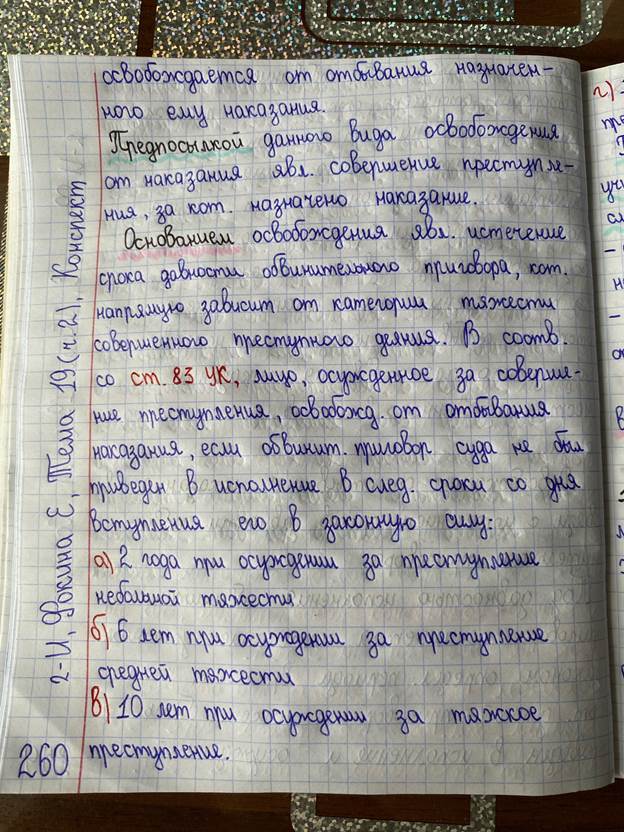 освобождается от отбывания назначен-
ного ему наказания.
Предпосылкой данного вида освобождения
от наказания явл. совершение преступле-
ния, за кот. назначено наказание.
Основанием освобождения явл. истечение
срока давности обвинительного приговора, кот.
напрямую зависит от категории тяжести
совершенного преступного деяния. В соотв.
со ст. 83 УК, лицо, осужденное за соверше-
ние преступления, освобожд. от отбывания
наказания, если обвинит. приговор суда не был
приведен в исполнение в след. сроки со дня
вступления его в законную силу:
а) 2 года при осуждении за преступление
небольшой тяжести
б) 6 лет при осуждении за преступление
средней тяжести
в) 10 лет при осуждении за тяжкое
преступление.
260
2-И, Фокина Е, Тема 19 (ч.2), Конспект
г)